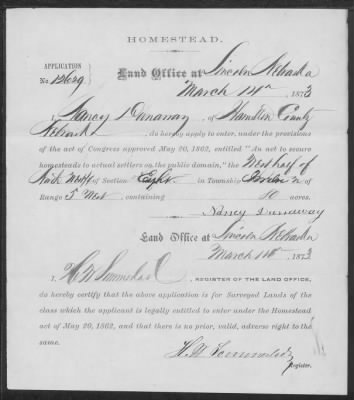 HOMESTEAD.
APPLICATION
No. 12629
Land Office at Lincoln Nebraska
March 1st 1873
I, Nancy Dunaway, of Hamilton County
Nebraska, do hereby apply to enter, under the provisions
of the act of Congress approved May 20, 1862, entitled "An act to secure
homesteads to actual settlers on the public domain," the West half of
North West ¼ of Section Eight in Township N of
Range 5 West containing 80 acres.
Nancy Dunaway
Land Office at Lincoln Nebraska
March 1st 1873
I, REGISTER OF THE LAND OFFICE,
do hereby certify that the above application is for Surveyed Lands of the
class which the applicant is legally entitled to enter under the Homestead
act of May 20, 1862, and that there is no prior, valid, adverse right to the
same.
Register.